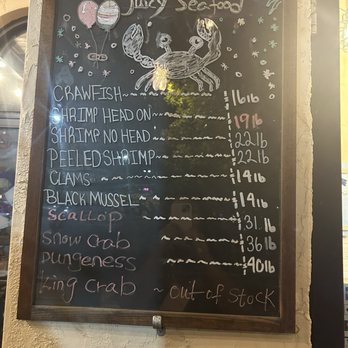 Juicy Seafood
CRAWFISH ~ $16lb
SHRIMP HEAD ON $19lb
SHRIMP NO HEAD $22lb
PEELED SHRIMP $22lb
CLAMS $14lb
BLACK MUSSEL $14lb
Scallop $31lb
Snow crab $36lb
Dungeness $40lb
King Crab ~ out of Stock